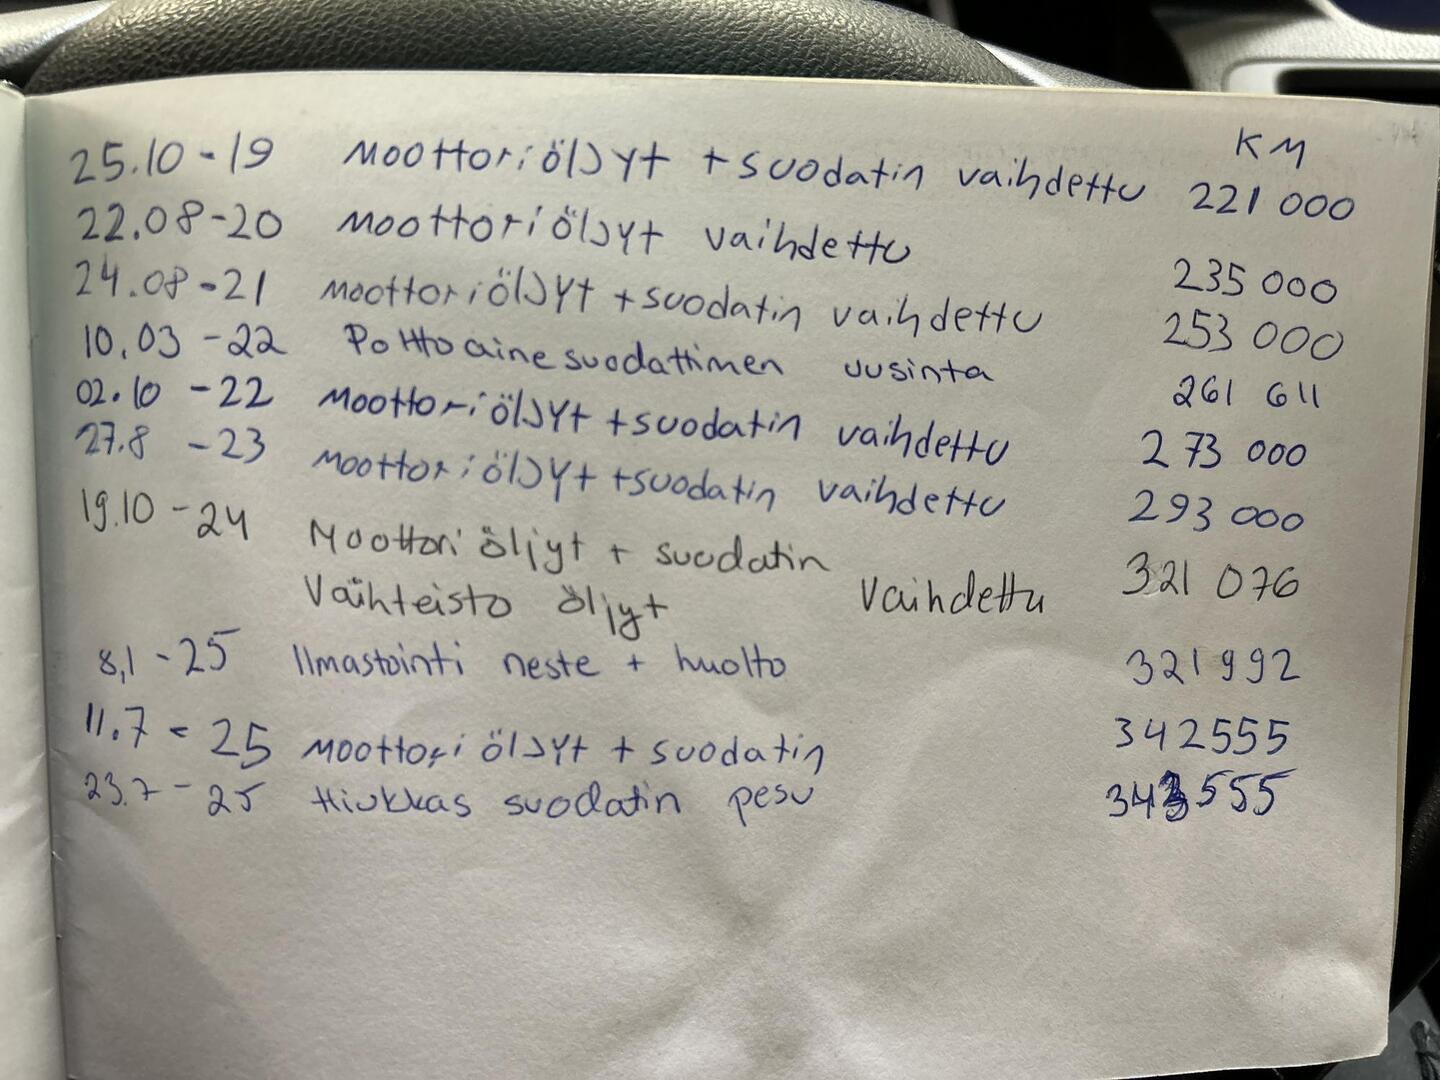 KM
25.10-19 Moottoriöljyt + suodatin vaihdettu 221 000
22.08-20 Moottoriöljyt vaihdettu 235 000
24.08-21 Moottoriöljyt + suodatin vaihdettu 253 000
10.03-22 Polttoainesuodattimen uusinta 261 611
02.10-22 Moottoriöljyt + suodatin vaihdettu 273 000
27.8-23 Moottoriöljyt + suodatin vaihdettu 293 000
19.10-24 Moottori öljyt + suodatin 321 076
Vaihteisto öljyt vaihdettu
8,1-25 Ilmastointi neste + huolto 321992
11.7-25 Moottori öljyt + suodatin 342555
23.7-25 Hiukkas suodatin pesu 343555